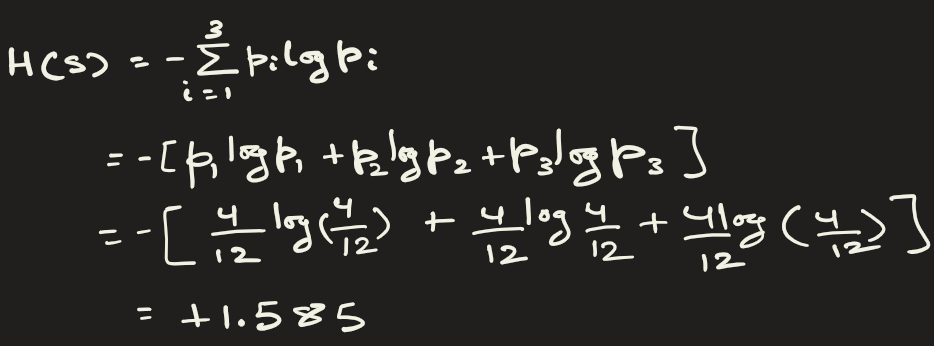 H(S) = - ∑_{i=1}^{3} p_i log p_i
= -[p_1 log p_1 + p_2 log p_2 + p_3 log p_3]
= -[ 4/12 log(4/12) + 4/12 log 4/12 + 4/12 log (4/12) ]
= +1.585